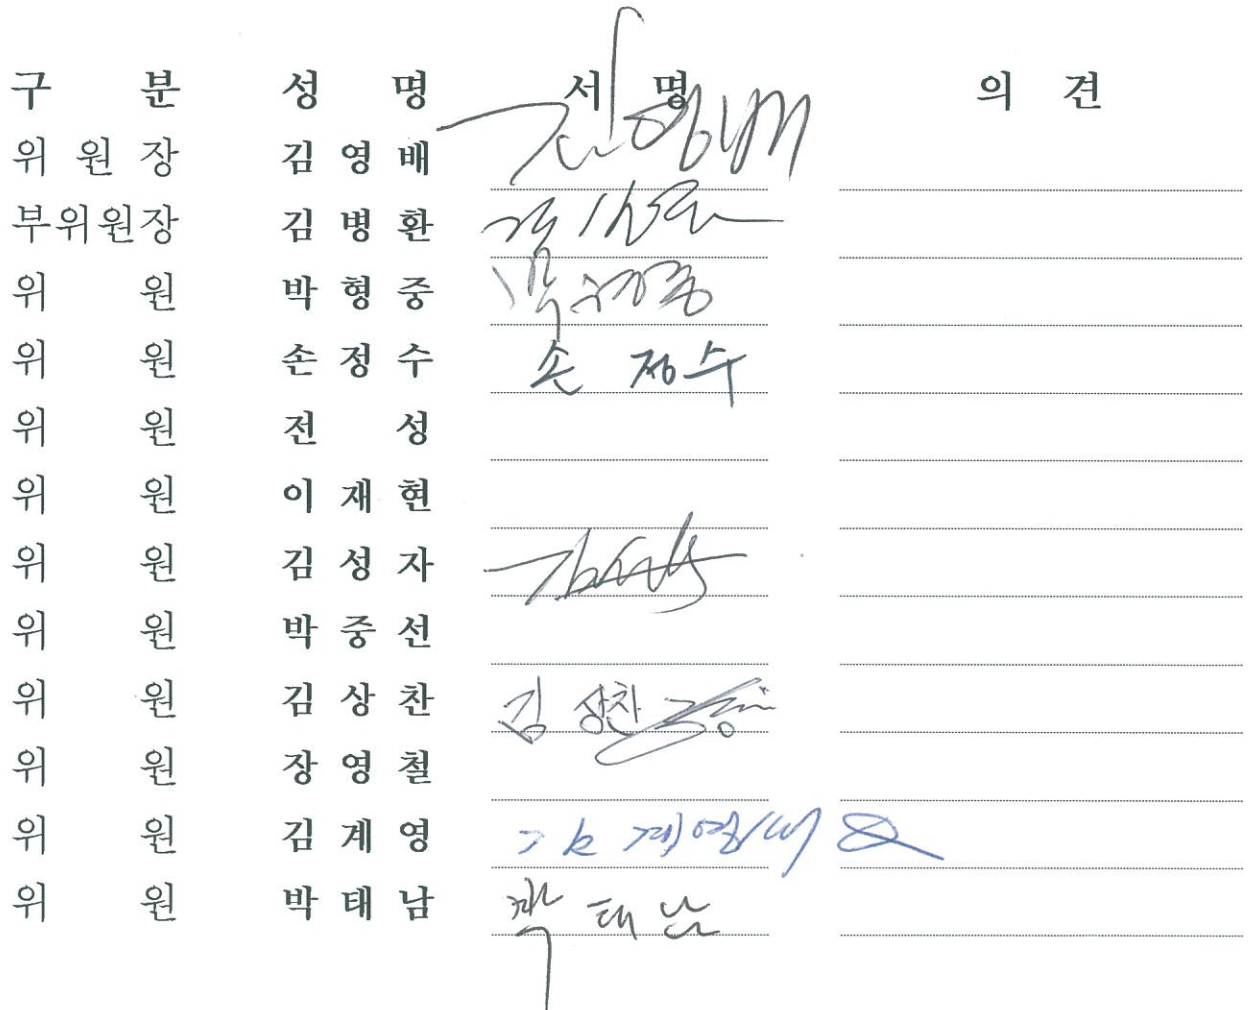 구 분 성 명 서 명 의 견
위 원 장 김 영 배 김영배
부위원장 김 병 환
위 원 박 형 중 박형중
위 원 손 정 수 손 정수
위 원 전 성
위 원 이 재 현
위 원 김 성 자 김성자
위 원 박 중 선
위 원 김 상 찬 김 상찬
위 원 장 영 철
위 원 김 계 영 김 계영
위 원 박 태 남 박 태남